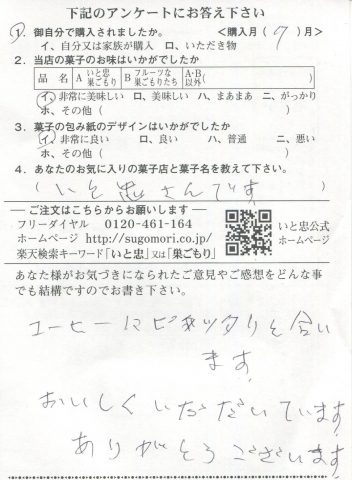 下記のアンケートにお答え下さい
1. 御自分で購入されましたか。 <購入月( 7 )月>
イ、自分又は家族が購入 ロ、いただき物
2. 当店の菓子のお味はいかがでしたか
品 名 A いと忠巣ごもり B フルーツな巣ごもりたち A・B以外( )
イ、非常に美味しい ロ、美味しい ハ、まあまあ ニ、がっかり
ホ、その他( )
3. 菓子の包み紙のデザインはいかがでしたか
イ、非常に良い ロ、良い ハ、普通 ニ、悪い
ホ、その他( )
4. あなたのお気に入りの菓子店と菓子名を教えて下さい。
(いと忠さんです。)
―ご注文はこちらからお願いします―
フリーダイヤル 0120-461-164
ホームページ http://sugomori.co.jp/
楽天検索キーワード「いと忠」又は「巣ごもり」
いと忠公式
ホームページ
あなた様がお気づきになられたご意見やご感想をどんな事
でも結構ですのでお書き下さい。
コーヒーにピッタリと合い
ます。
おいしくいただいています。
ありがとうございます。